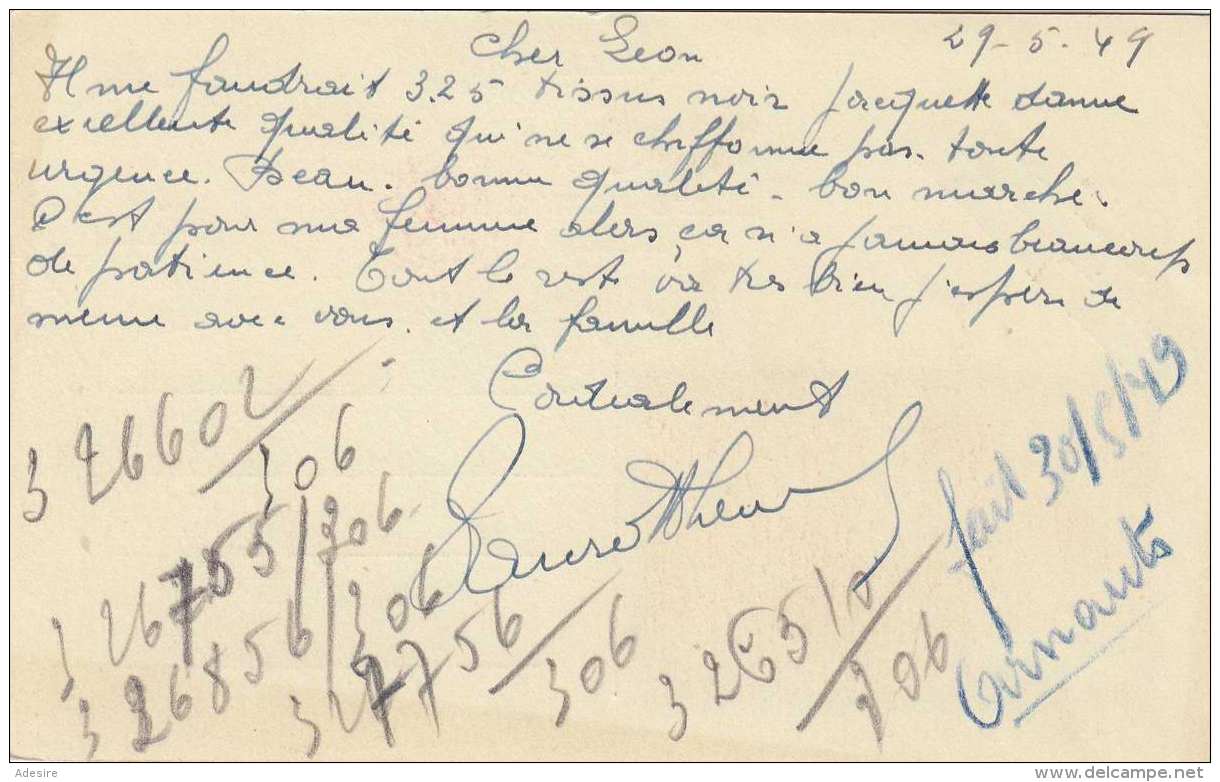 29-5-49
Cher Leon
Il me faudrait 3.25 tissus noir jacquette danue
excellente qualité qui ne se cheffonne pas. toute
urgence. Beau. bonne qualité - bon marche.
C'est pour ma femme alors ça n'a jamais beaucoup
de patience. Tout le reste va tres bien j'espere de
meme avec vous. et la famille
Cordialement
3 26602/
306
3 26755/306
3 26856/306
3 27756/
306
3 26510/
306
fait 30/5/49
Arnauts
Adesire
www.delcampe.net